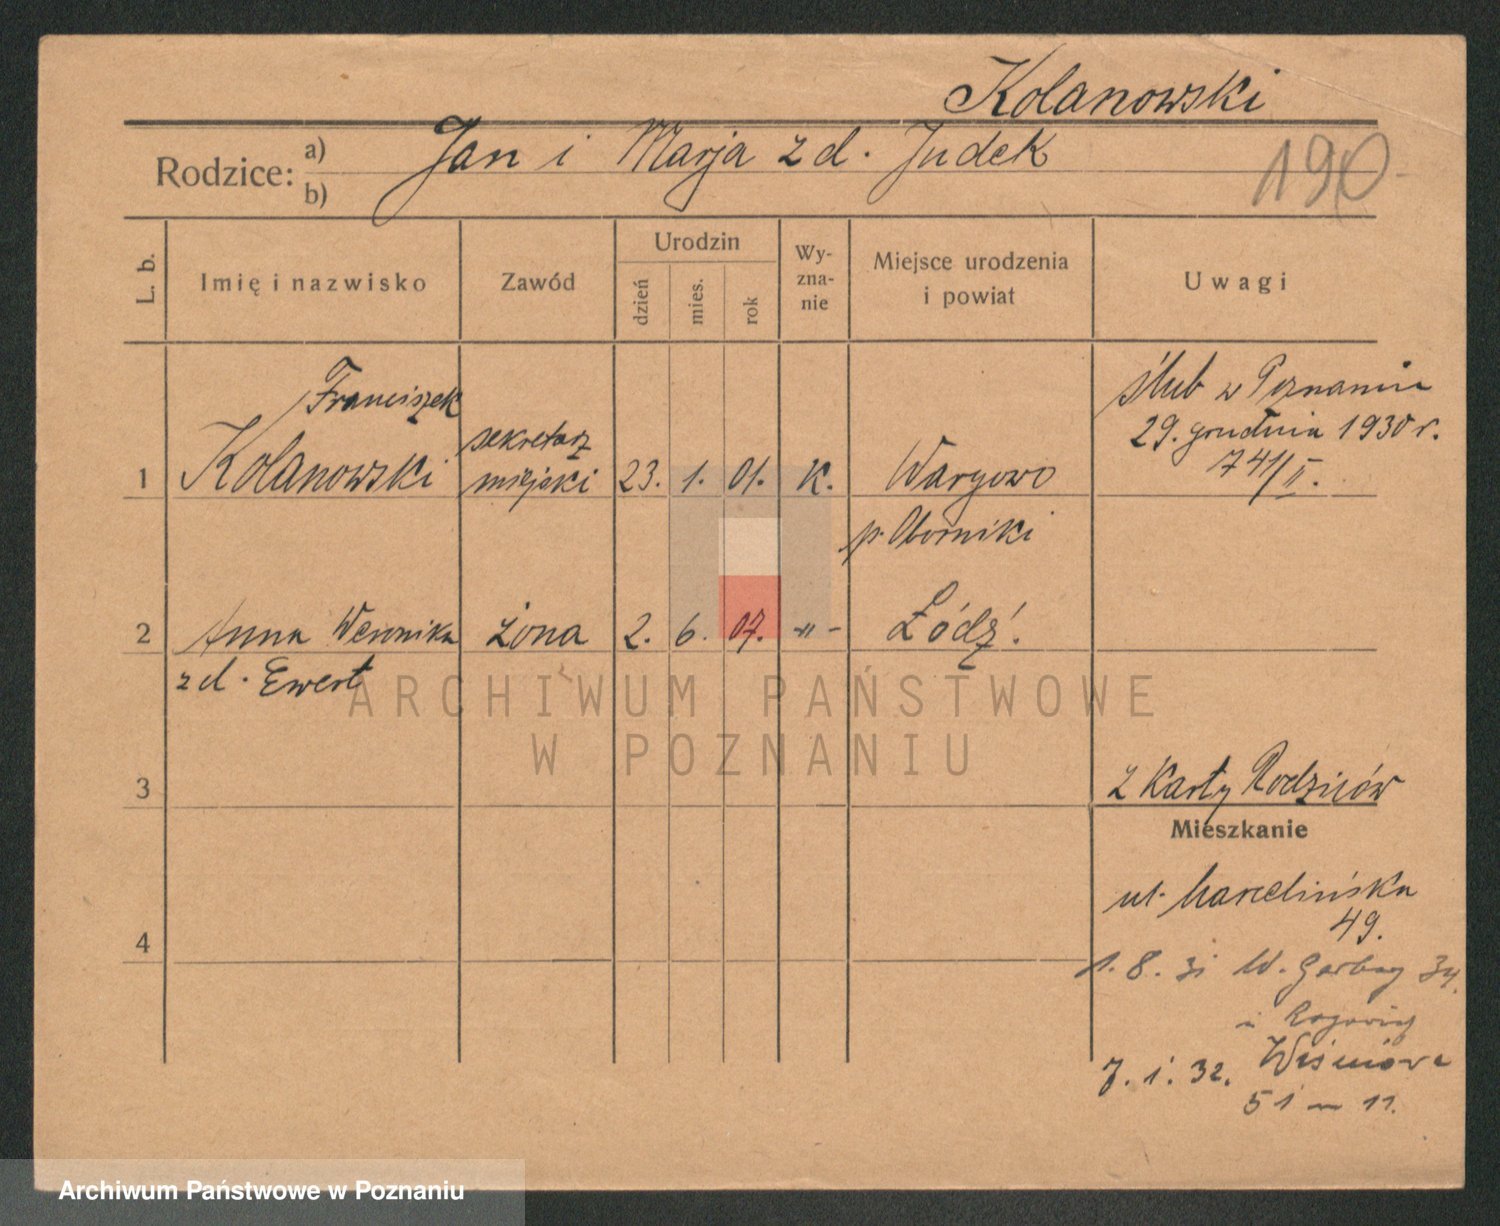 Kolanowski
Rodzice: a) Jan i Marja z d. Judek
b)
190
L. b.
Imię i nazwisko
Zawód
Urodzin
dzień
mies.
rok
Wy-
zna-
nie
Miejsce urodzenia
i powiat
Uwagi
Franciszek
1 Kolanowski
sekretarz
miejski
23. 1. 01. K.
Wargowo
p. Oborniki
ślub w Poznaniu
29. grudnia 1930 r.
741/II.
2 Anna Weronika
z d. Ewert
żona
2. 6. 07. -"-
Łódź.
3
z Karty Rodziców
Mieszkanie
4
ul. Marcelińska
49.
1. 8. 31 W. Garbary 34.
u
7. 1. 32. Wiśniowa
51 — 11.
ARCHIWUM PAŃSTWOWE
W POZNANIU
Archiwum Państwowe w Poznaniu